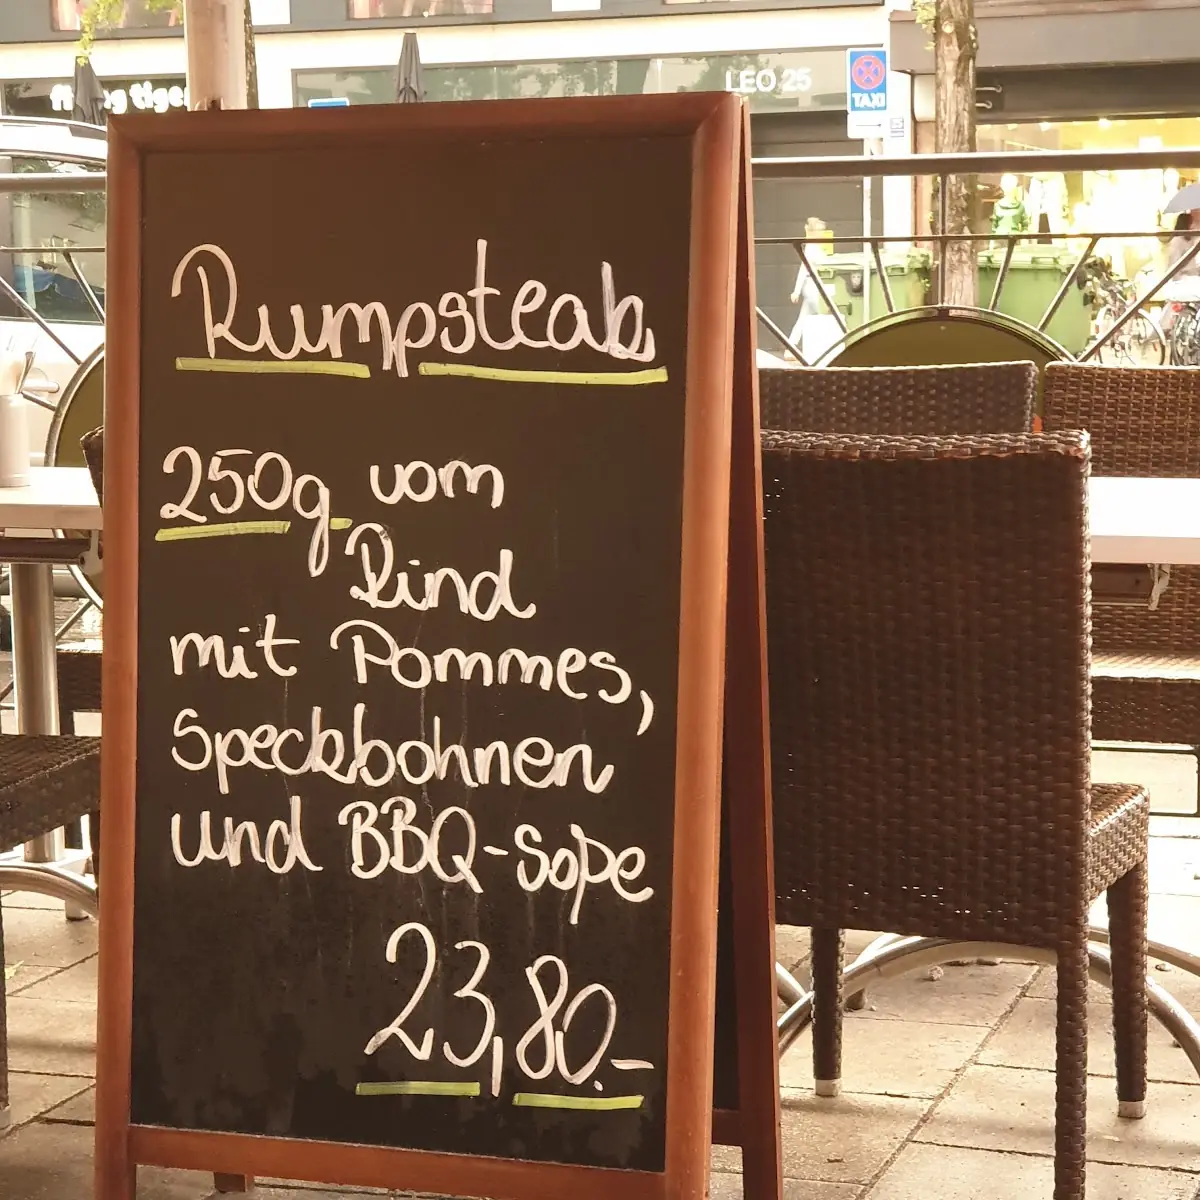 LEO 25
TAXI
Rumpsteak
250g vom
Rind
mit Pommes,
Speckbohnen
und BBQ-Soße
23,80.-